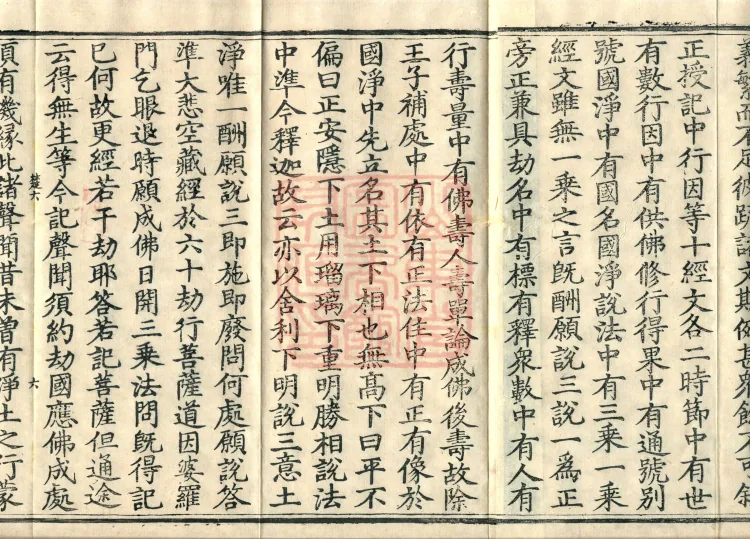 正授記中行因等十經文各二時節中有世
有數行因中有供佛修行得果中有通號別
號國淨中有國名國淨說法中有三乘一乘
經文雖無一乘之言旣酬願說三說一爲正
旁正兼具劫名中有標有釋衆數中有人有
行壽量中有佛壽人壽單論成佛後壽故除
王子補處中有依有正法住中有正有像於
國淨中先立名其土下相也無高下曰平不
偏曰正安隱下土用瑠璃下重明勝相說法
中準今釋迦故云亦以舍利下明說三意土
淨唯一酬願說三即施即廢問何處願說答
準大悲空藏經於六十劫行菩薩道因婆羅
門乞眼退時願成佛日開三乘法問旣得記
已何故更經若干劫耶答若記菩薩但通途
云得無生等今記聲聞須約劫國應佛成處
楚六
六
須有機緣此諸聲聞昔未曾有淨土之行蒙